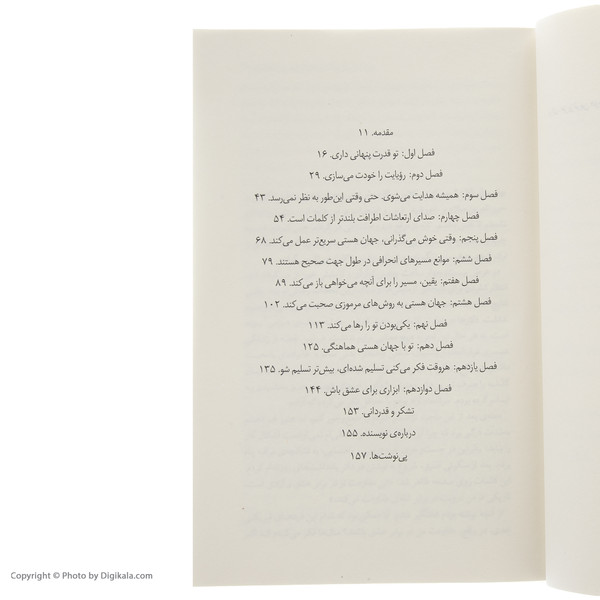 مقدمه. ۱۱
فصل اول: تو قدرت پنهانی داری. ۱۶
فصل دوم: رؤیایت را خودت می‌سازی. ۲۹
فصل سوم: همیشه هدایت می‌شوی. حتی وقتی این‌طور به نظر نمی‌رسد. ۴۳
فصل چهارم: صدای ارتعاشات اطرافت بلندتر از کلمات است. ۵۴
فصل پنجم: وقتی خوش می‌گذرانی، جهان هستی سریع‌تر عمل می‌کند. ۶۸
فصل ششم: موانع مسیرهای انحرافی در طول جهت صحیح هستند. ۷۹
فصل هفتم: یقین، مسیر را برای آنچه می‌خواهی باز می‌کند. ۸۹
فصل هشتم: جهان هستی به روش‌های مرموزی صحبت می‌کند. ۱۰۲
فصل نهم: یکی‌بودن تو را رها می‌کند. ۱۱۳
فصل دهم: تو با جهان هستی هماهنگی. ۱۲۵
فصل یازدهم: هروقت فکر می‌کنی تسلیم شده‌ای، بیش‌تر تسلیم شو. ۱۳۵
فصل دوازدهم: ابزاری برای عشق باش. ۱۴۴
تشکر و قدردانی. ۱۵۳
درباره‌ی نویسنده. ۱۵۵
پی‌نوشت‌ها. ۱۵۷
Copyright © Photo by Digikala.com